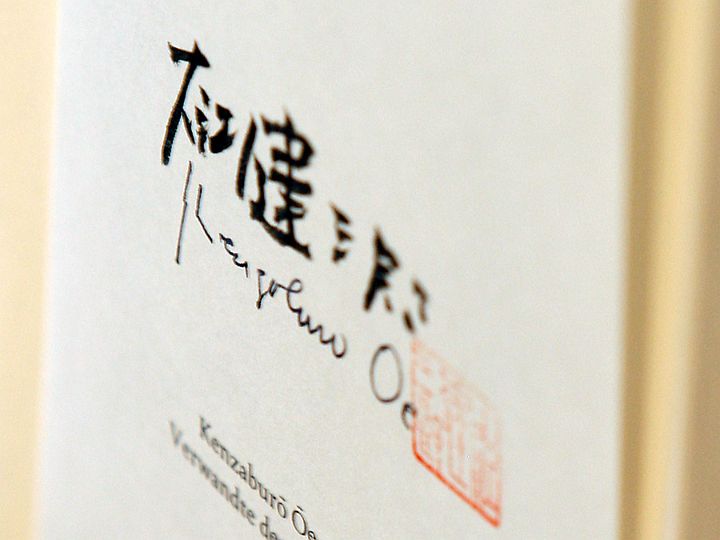 大江健三郎
Kenzaburo Oe
Kenzaburō Ōe
Verwandte de